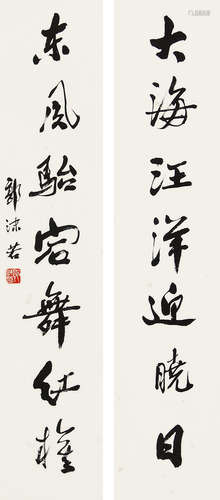 大海汪洋迎曉日
东风駘宕舞红
郭沫若